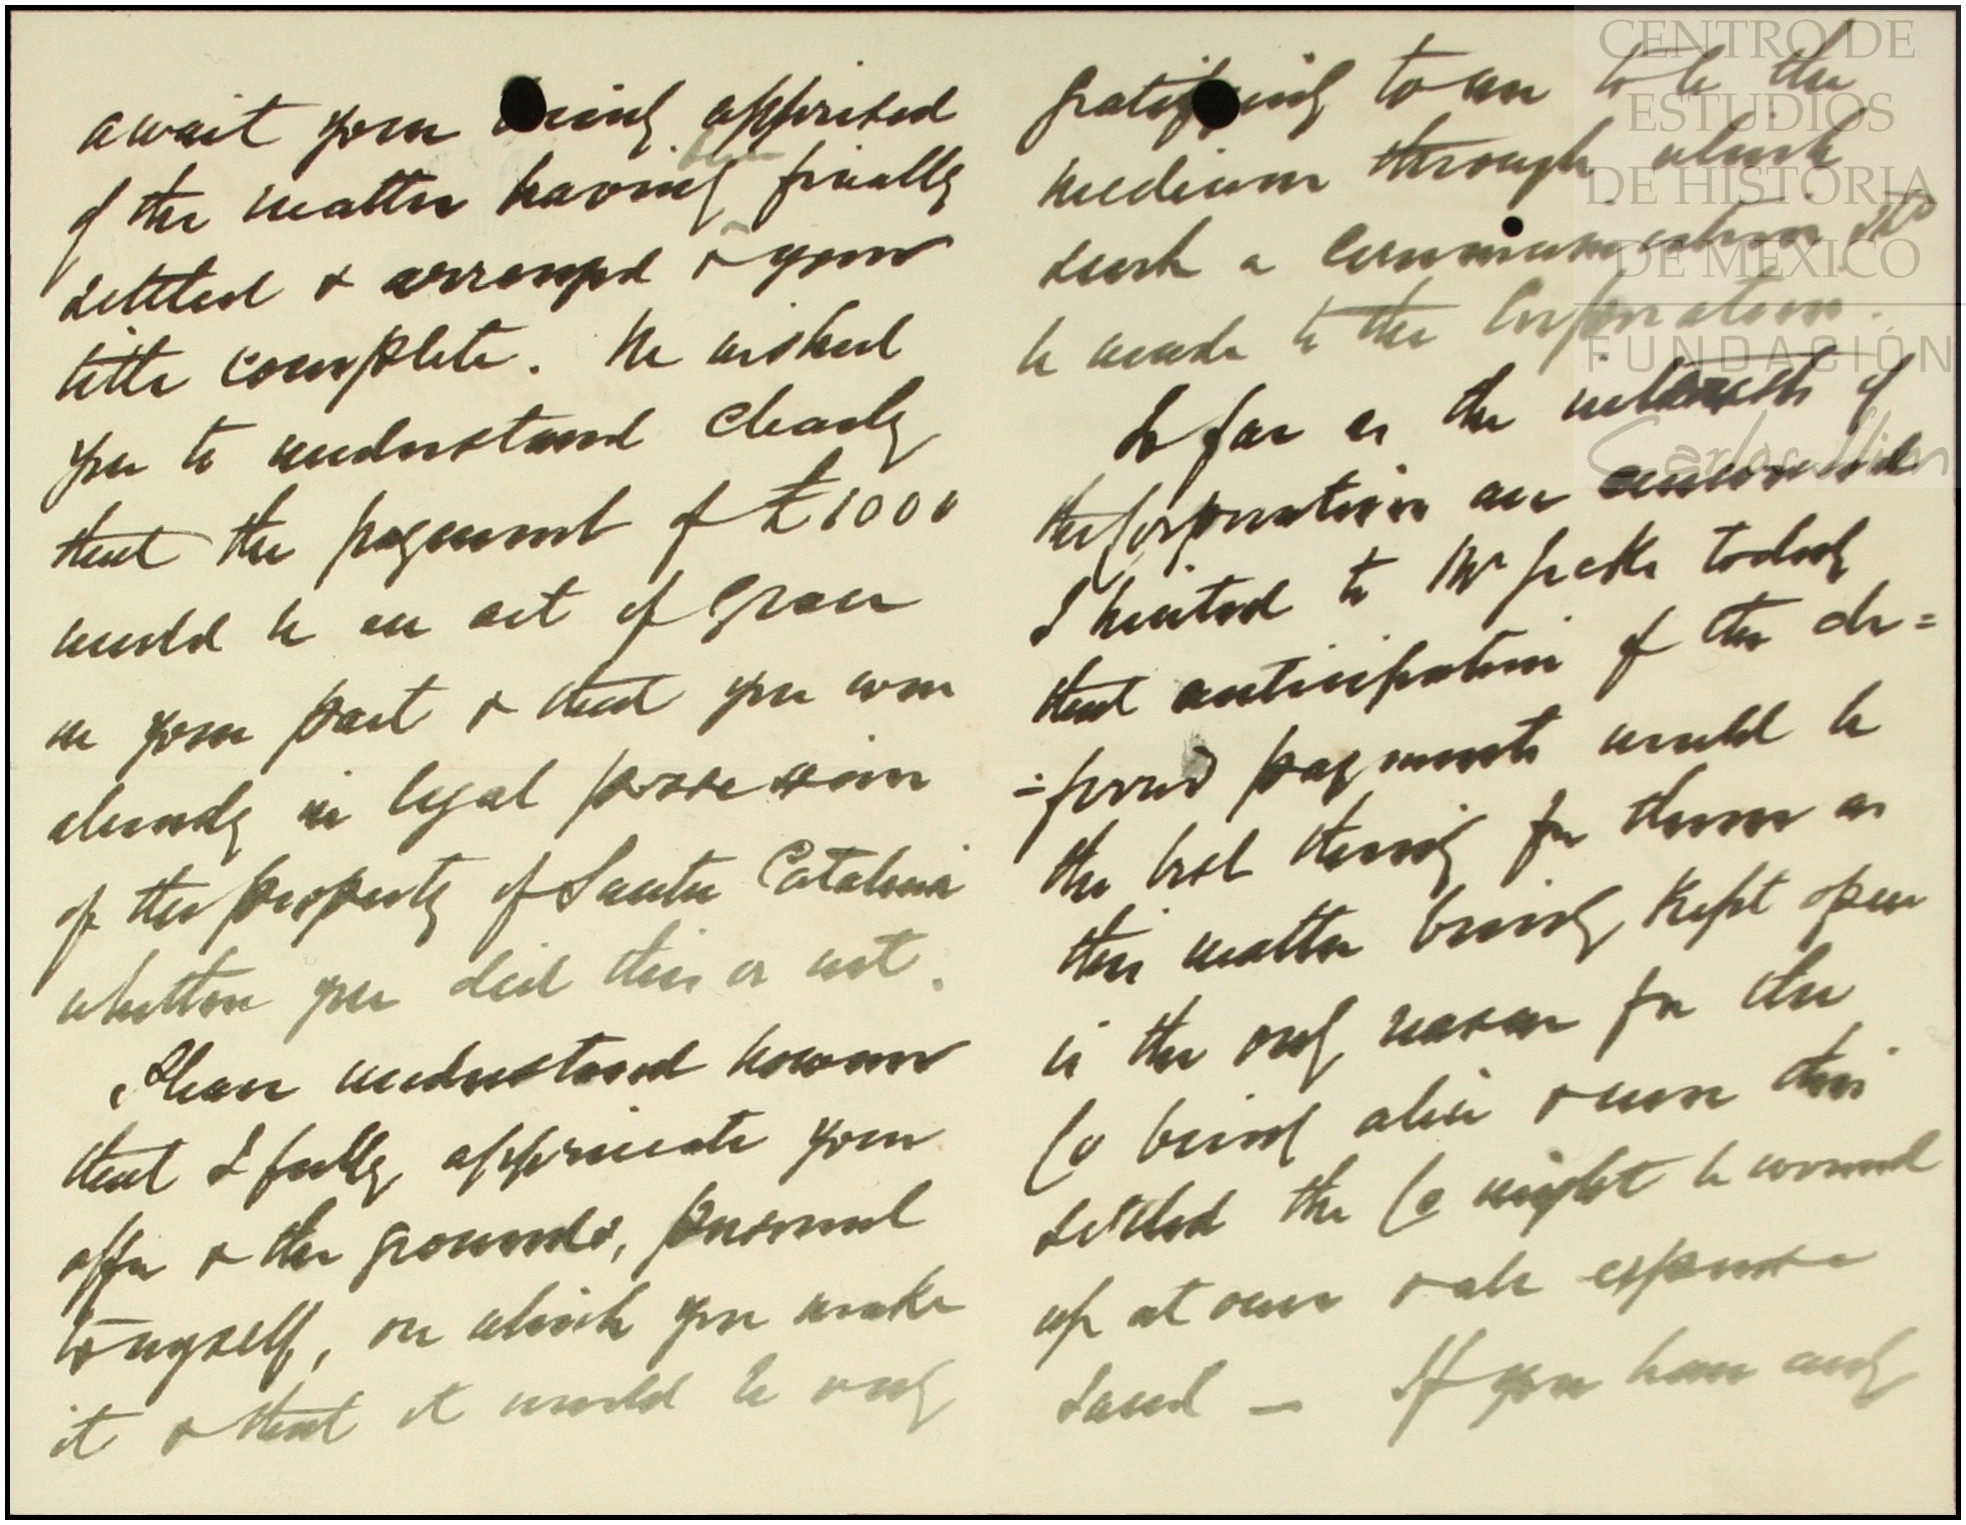 await your being apprised
of the matter having been finally
settled & arranged & your
title complete. He wished
you to understand clearly
that the payment of £1000
would be an act of grace
on your part & that you were
already in legal possession
of the property of Santa Catalina
whether you did this or not.
Please understand however
that I fully appreciate your
offer & the grounds, personal
to myself, on which you make
it & that it would be very
gratifying to me to be the
medium through which
such a communication
be made to the Corporation.
So far as the interests of
the Corporation are concerned
I hinted to Mr today
that anticipation of the de=
=ferred payments would be
the best thing for them as
this matter being kept open
is the only reason for the
Co being alive & once this
settled the Co might be wound
up at once & all expense
saved — If you have any
CENTRO DE
ESTUDIOS
DE HISTORIA
DE MEXICO
FUNDACIÓN
Carlos Slim